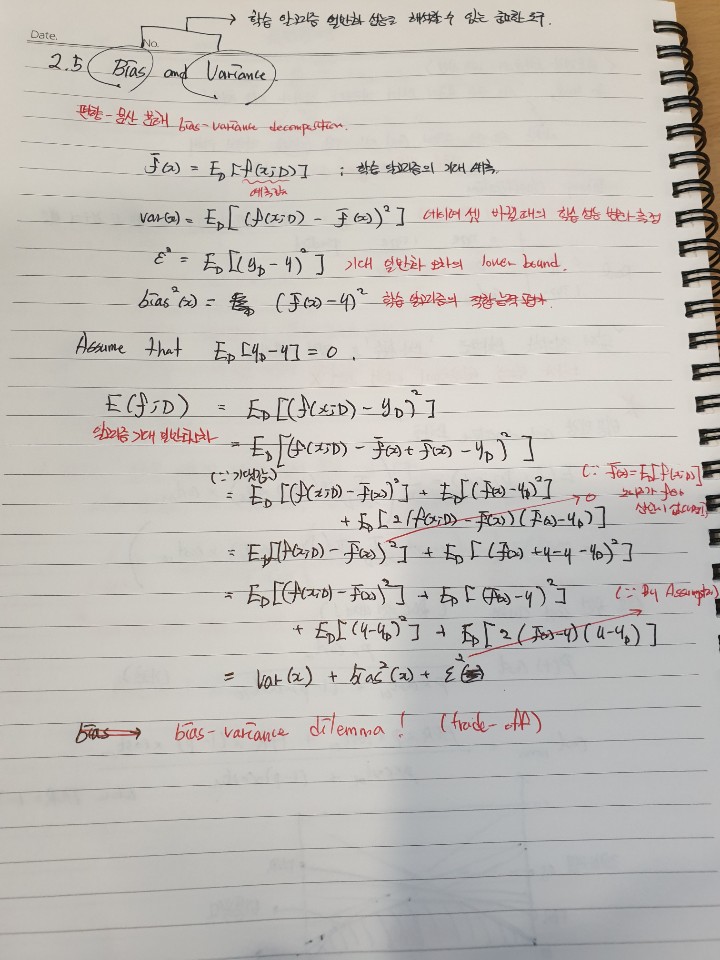 → 학습 알고리즘 일반화 성능을 해석할 수 있는 중요한 도구.
Date.
No.
2.5 Bias and Variance
편향-분산 분해 bias-variance decomposition.
f̄(x) = E_D [f(x;D)] ; 학습 알고리즘의 기대 예측.
예측값
var(x) = E_D[(f(x;D) - f̄(x))²] 데이터 셋 바뀔 때의 학습 성능 변화 측정
ε² = E_D[(y_D - y)²] 기대 일반화 오차의 lower bound.
bias²(x) = (f̄(x) - y)² 학습 알고리즘의 적합 능력 평가
Assume that E_D[y_D - y] = 0.
E(f;D) = E_D[(f(x;D) - y_D)²]
알고리즘 기대 일반화 오차
= E_D[(f(x;D) - f̄(x) + f̄(x) - y_D)²]
= E_D[(f(x;D) - f̄(x))²] + E_D[(f̄(x) - y_D)²]
(∵ f̄(x) = E_D[f(x;D)]
+ E_D[2(f(x;D) - f̄(x))(f̄(x) - y_D)] → 0
= E_D[(f(x;D) - f̄(x))²] + E_D[(f̄(x) + y - y - y_D)²]
= E_D[(f(x;D) - f̄(x))²] + E_D[(f̄(x) - y)²]
(∵ By Assumption)
+ E_D[(y - y_D)²] + E_D[2(f̄(x) - y)(y - y_D)]
= var(x) + bias²(x) + ε²
bias → bias-variance dilemma! (trade-off)